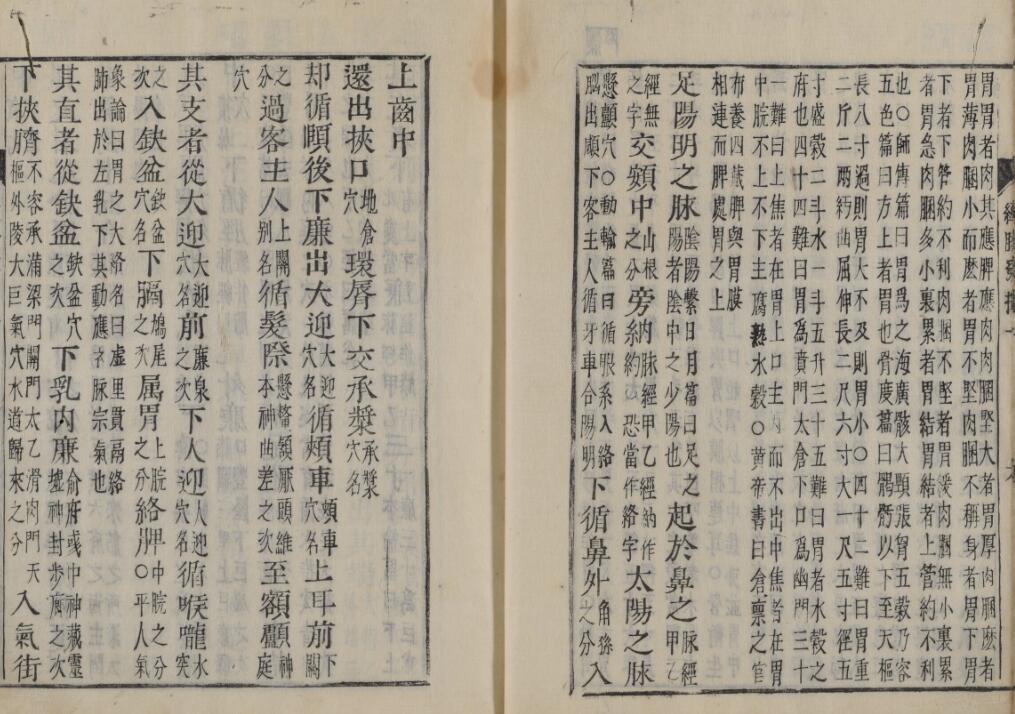 胃胃者肉其應脾應肉肉䐃堅大者胃厚肉䐃麽者
胃薄肉䐃小而麽者胃不堅肉䐃不稱身者胃下胃
下者下管約不利肉䐃不堅者胃緩肉䐃無小裏累
者胃急肉䐃多小裏累者胃結胃結者上管約不利
也〇師傳篇曰胃爲之海廣骸大頸張胷五穀乃容
五色篇曰方上者胃也骨度篇曰䯏骬以下至天樞
長八寸過則胃大不及則胃小〇四十二難曰胃重
二斤二兩紆曲屈伸長二尺六寸大一尺五寸徑五
寸盛穀二斗水一斗五升三十五難曰胃者水穀之
府也四十四難曰胃爲賁門太倉下口爲幽門三十
一難曰上焦者在胃上口主内而不出中焦者在胃
中脘不上不下主腐熟水穀〇黄帝書曰倉禀之官
布養四藏脾與胃膜
相連而脾處胃之上
足陽明之脉陰陽繫日月篇曰足之陽者陰中之少陽也起於鼻之脉經甲乙
經無之字交頞中山根之分旁脉經甲乙經的作約恐當作絡字太陽之脉
懸顱穴〇動輸篇曰循眼系入絡腦出顑下客主人循牙車合陽明下循鼻外角孫之分入
上齒中
還出挾口地倉穴環脣下交承漿承漿穴名
却循頤後下廉出大迎大迎穴名循頰車頰車穴名上耳前下關
之分過客主人上關别名循髮際懸釐頷厭頭維本神曲差之次至額顱神庭
穴
其支者從大迎大迎穴名前廉泉之次下人迎人迎穴名循喉嚨水突
之次入缺盆缺盆穴名下膈鳩尾之次属胃上脘之分絡脾中脘之分〇平人氣
象論曰胃之大絡名曰虛里貫鬲絡肺出於左乳下其動應衣脉宗氣也
其直者從缺盆缺盆穴之次下乳内廉俞府彧中神藏靈墟神封步廊之次
下挾臍不容承滿梁門關門太乙滑肉門天樞外陵大巨氣穴水道歸來之分入氣街